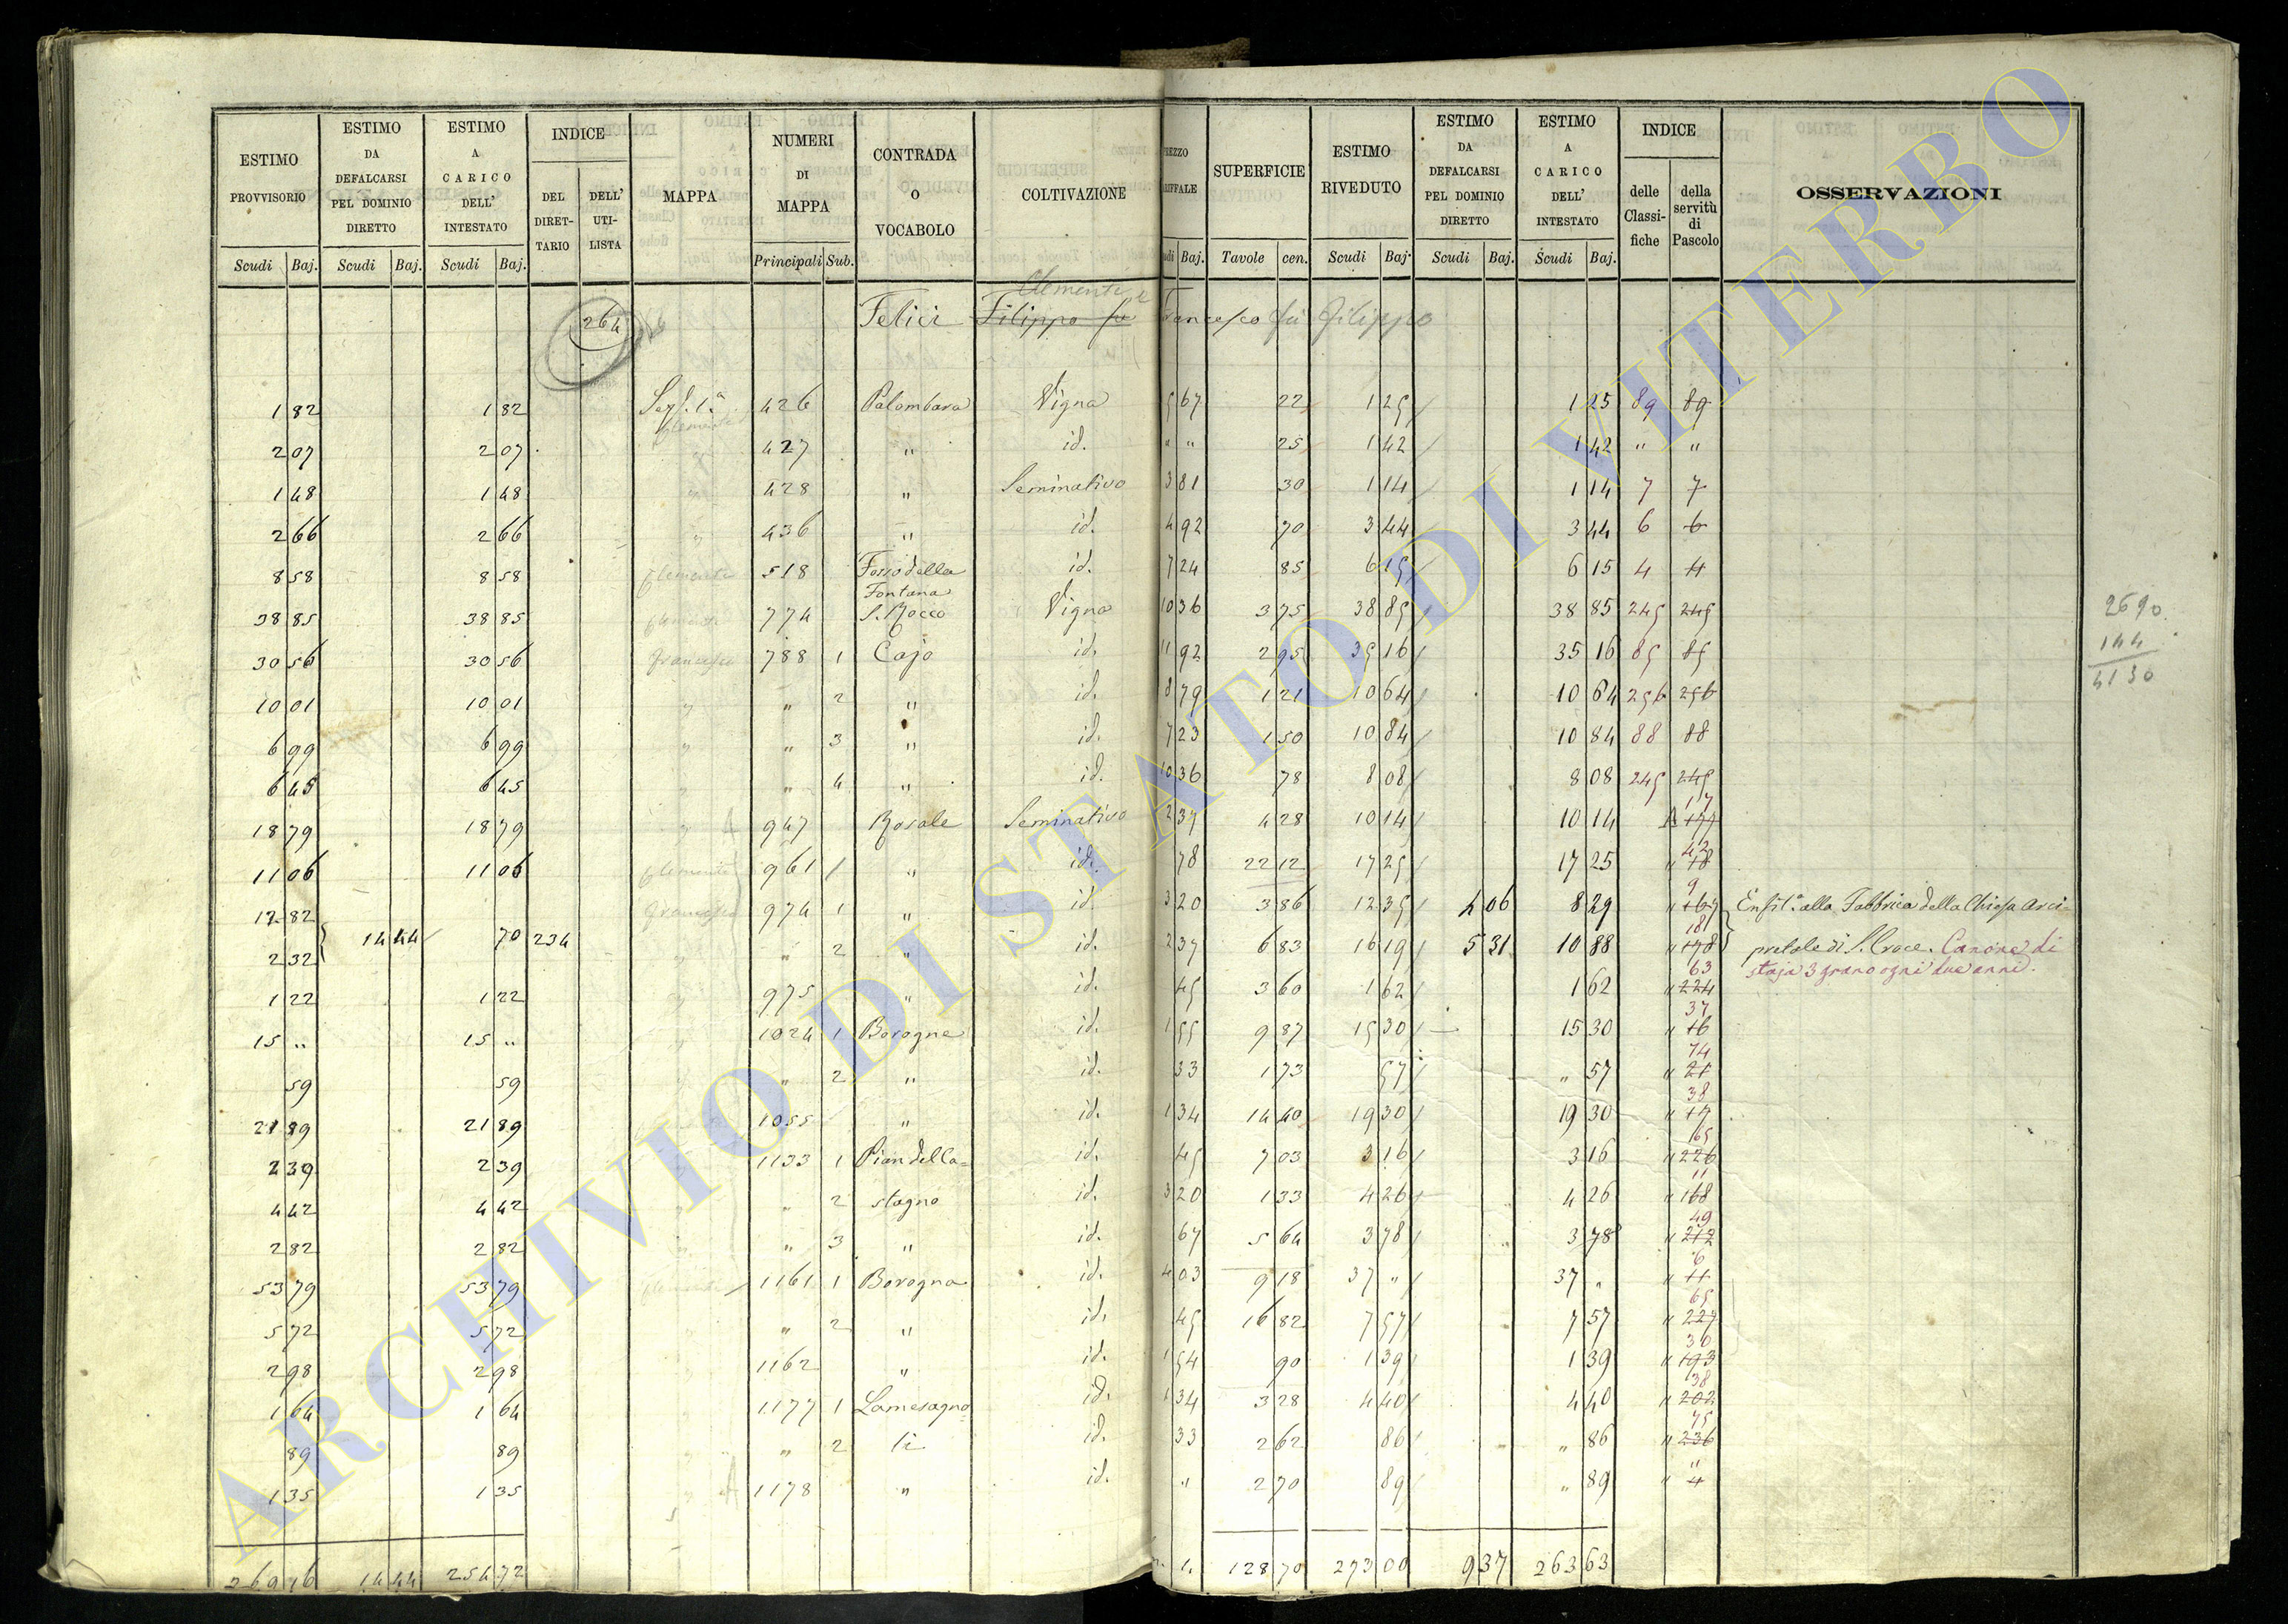 ESTIMO PROVVISORIO | ESTIMO DA DEFALCARSI PEL DOMINIO DIRETTO | ESTIMO A CARICO DELL' INTESTATO | INDICE DEL DIRET-TARIO | DELL' UTI-LISTA | MAPPA | NUMERI DI MAPPA | CONTRADA O VOCABOLO | COLTIVAZIONE | SUPERFICIE | ESTIMO RIVEDUTO | ESTIMO DA DEFALCARSI PEL DOMINIO DIRETTO | ESTIMO A CARICO DELL' INTESTATO | INDICE delle Classi-fiche | della servitù di Pascolo | OSSERVAZIONI
Scudi Baj. Scudi Baj. Scudi Baj. Principali Sub. Baj. Tavole cen. Scudi Baj. Scudi Baj. Scudi Baj.
Clemente e
264 Felici Filippo fu Francesco fu Filippo
1 82 1 82 426 Palombara Vigna 5 67 22 1 25 1 25 89 89
2 07 2 07 427 " id. " " 25 1 42 1 42 " "
1 48 1 48 428 " Seminativo 3 81 30 1 14 1 14 7 7
2 66 2 66 436 " id. 4 92 70 3 44 3 44 6 6
8 58 8 58 Clemente 518 Fosso della Fontana id. 7 24 85 6 15 6 15 4 4
38 85 38 85 774 S. Rocco Vigna 10 36 3 75 38 85 38 85 245 245
30 56 30 56 Francesco 788 1 Cajo id. 11 92 2 95 35 16 35 16 85 85
10 01 10 01 " " 2 " id. 8 79 1 21 10 64 10 64 256 256
6 99 6 99 " " 3 " id. 7 23 1 50 10 84 10 84 88 88
6 45 6 45 " " 4 " id. 10 36 78 8 08 8 08 245 245
18 79 18 79 " 947 Rosale Seminativo 2 37 4 28 10 14 10 14 17
11 06 11 06 Clemente 961 1 " id. 78 22 12 17 25 17 25 " 42 18
12 82 Francesco 974 1 " id. 3 20 3 86 12 35 4 06 8 29 " 9 167 Enfit.a alla Fabbrica della Chiesa Arci-
2 32 14 44 70 234 " " 2 " id. 2 37 6 83 16 19 5 31 10 88 " 181 178 pretale di S. Croce. Canone di
staja 3 grano ogni due anni.
1 22 1 22 " 975 " id. 45 3 60 1 62 1 62 " 63 224
15 " 15 " 1024 1 Borogna id. 1 55 9 87 15 30 15 30 " 37 16
59 59 " " 2 " id. 33 1 73 57 " 57 " 74 21
21 89 21 89 1055 " id. 1 34 14 40 19 30 19 30 " 38 17
2 39 2 39 1133 1 Pian della= id. 45 7 03 3 16 3 16 " 65 226
4 42 4 42 " 2 stagno id. 3 20 1 33 4 26 4 26 " 11 168
2 82 2 82 " 3 " id. 67 5 64 3 78 3 78 " 49 212
53 79 53 79 Clemente 1161 1 Borogna id. 4 03 9 18 37 " 37 " " 6 11
5 72 5 72 " 2 " id. 45 16 82 7 57 7 57 " 65 227
2 98 2 98 1162 " id. 1 54 90 1 39 1 39 " 30 193
1 64 1 64 1177 1 Lamesagno= id. 1 34 3 28 4 40 4 40 " 38 202
89 89 " 2 li id. 33 2 62 86 " 86 " 75 236
1 35 1 35 1178 " id. " 2 70 89 " 89 " " 4
269 16 14 44 254 72 128 70 273 00 9 37 263 63
2690
144
4130
ARCHIVIO DI STATO DI VITERBO